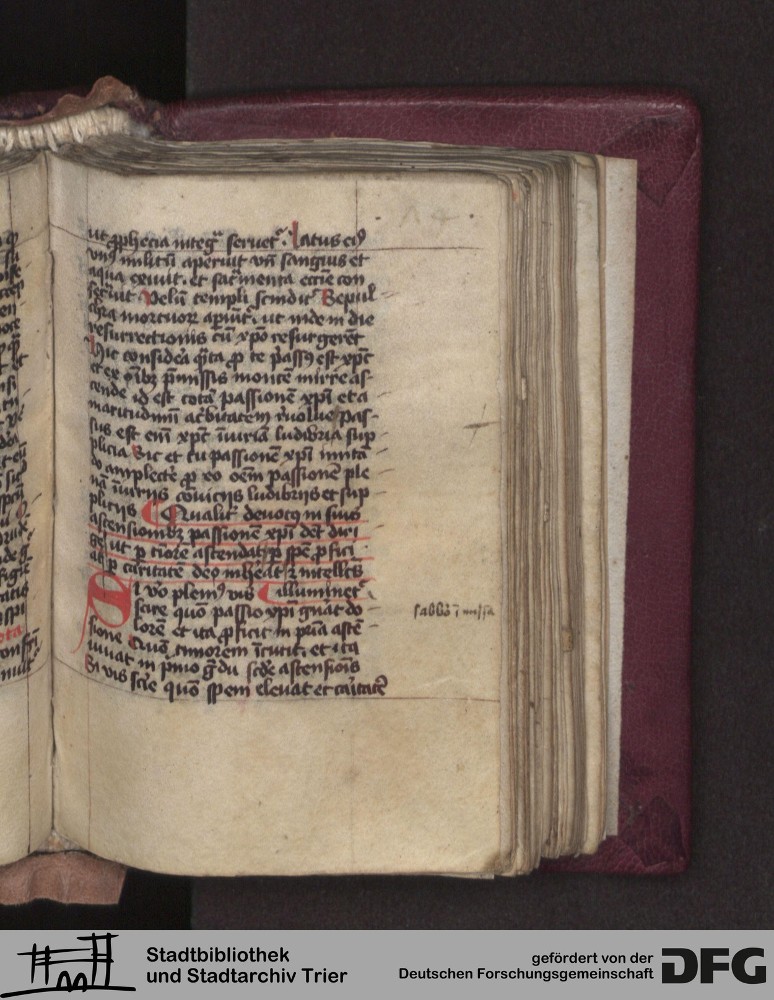 ut ꝓphecia integᵃ seruetᵉ. Latus eiꝰ
vnꝰ militū aperuit vñ sanguis et
aqua exiuit. et sacᵃmenta eccīe con
secᵃuit Velū templi scindit᷑ Sepul
chra mortuoꝝ apiūt᷑. ut inde in die
resurrectionis cū xp̄o resurgerēt
Hic considera q̄ta ꝓ te passꝰ est xp̄c
et ex oībꝫ p̄missis montē mirre as
cende id est totā passionē xp̄i et a
maritudinū acerbitatem reuolue pas
sus est em̄ xp̄c iniuriā ludibria sup
plicia Sic et tu passionē xp̄i imitā
do amplecte᷑ ꝓ eo oēm passionē ple
nā iniuriis cōuiciis ludibriis et sup
pliciis Qualit᷑ deuotꝰ in suis
ascensionibꝫ passionē xp̄i debet diri
ge᷑ ut ꝑ timorē ascendat ꝑ spē ꝓfici
at ꝑ caritatē deo inhereat ⁊ intellcūs
Si vo plemꝰ vis illuminet᷑
scire quō passio xp̄i gn̄at do
lorē et ita ꝓficit in p̄ma ascē
sione Quō timorem īcutit. et ita
iuuat in pmo gᵃdu scd̄e ascensiōis
Si vis scīe quō spem eleuat et caritatē
sabbō ī missa
Stadtbibliothek
und Stadtarchiv Trier
gefördert von der
Deutschen Forschungsgemeinschaft
DFG